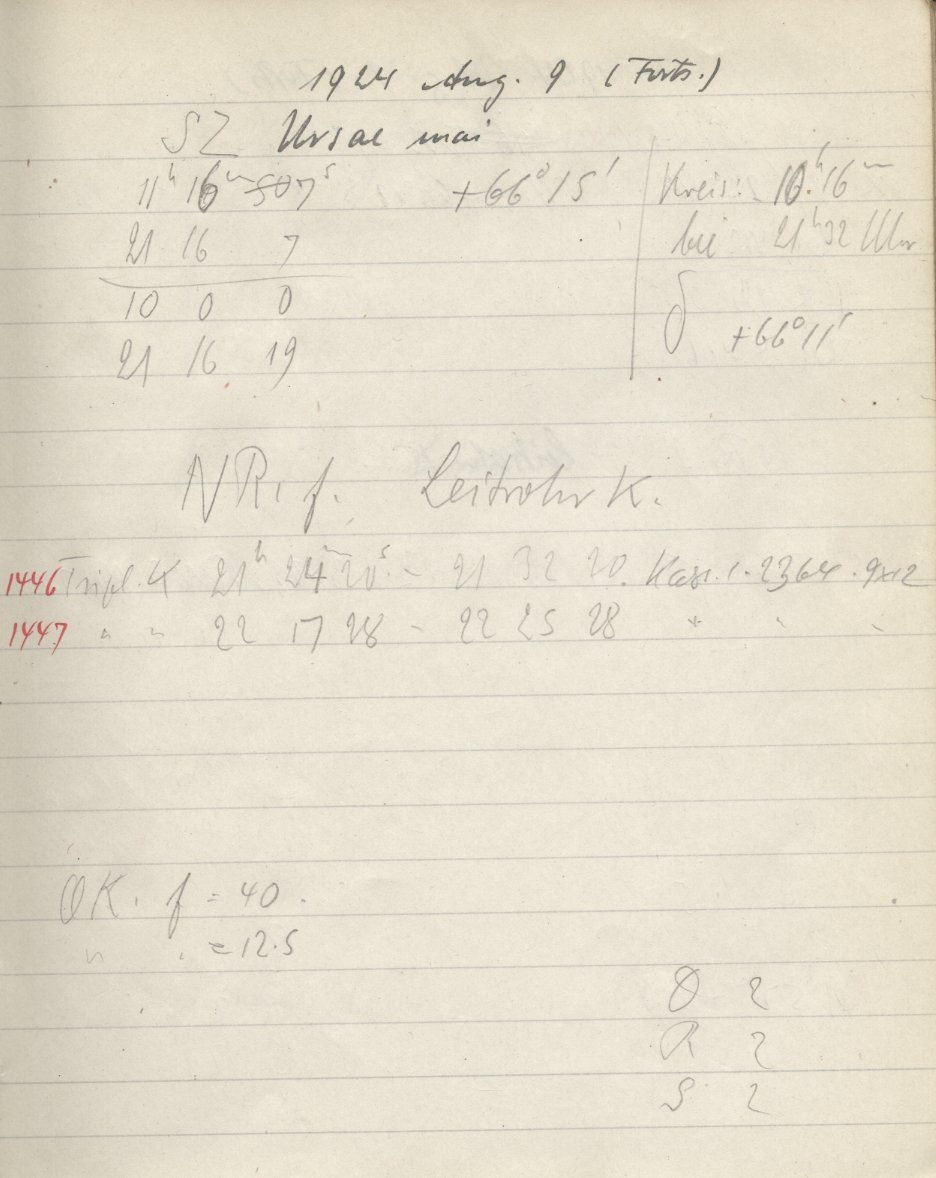 1924 Aug. 9 (Forts.)
SZ Ursae mai
11h 16m 7s +66° 15'
21 16 7
10 0 0
21 16 19
Kreis: 10h 16m
bei 21h 32 Uhr
δ +66° 11'
NR. f. Leitrohr K.
1446 Tripl. K 21h 24m 20s - 21 32 20. Kass. 1. 2364. 9x12
1447 " " 22 17 28 - 22 25 28 " " "
OK. f = 40.
" . = 12.5
O 2
R 2
S 2